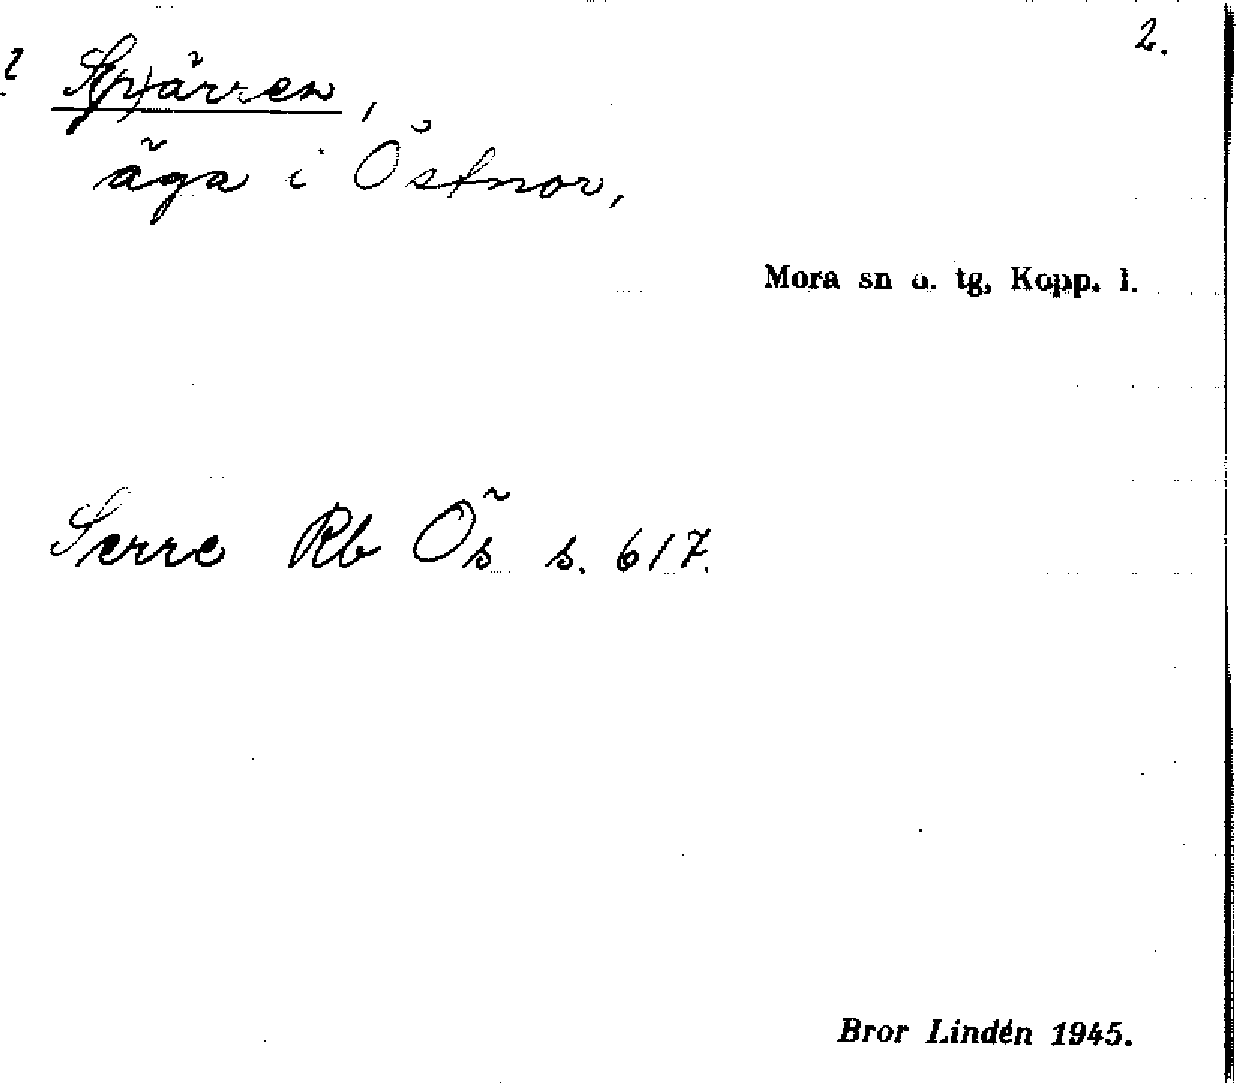 2.
? S(p)ärren,
äga i Östnor,
Mora sn o. tg, Kopp. l.
Serre Rb Ös s. 617.
Bror Lindén 1945.